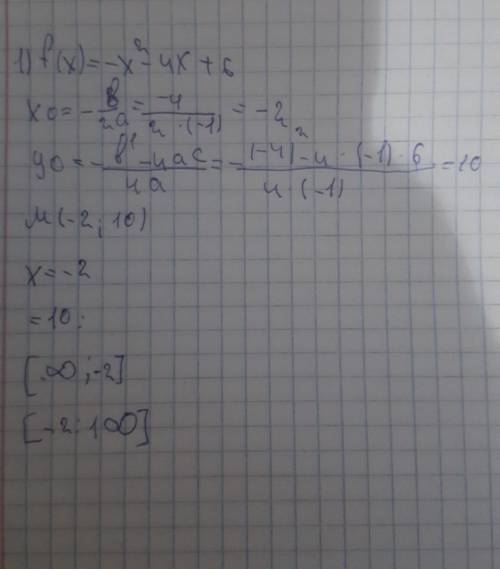 1) f(x) = -x² - 4x + 6
x0 = - в/2a = -4/2·(-1) = -2
y0 = - в² - 4ac/4a = - (-4)² - 4·(-1)·6/4·(-1) = 10
M(-2; 10)
x = -2
= 10:
[-∞; -2]
[-2; +∞]